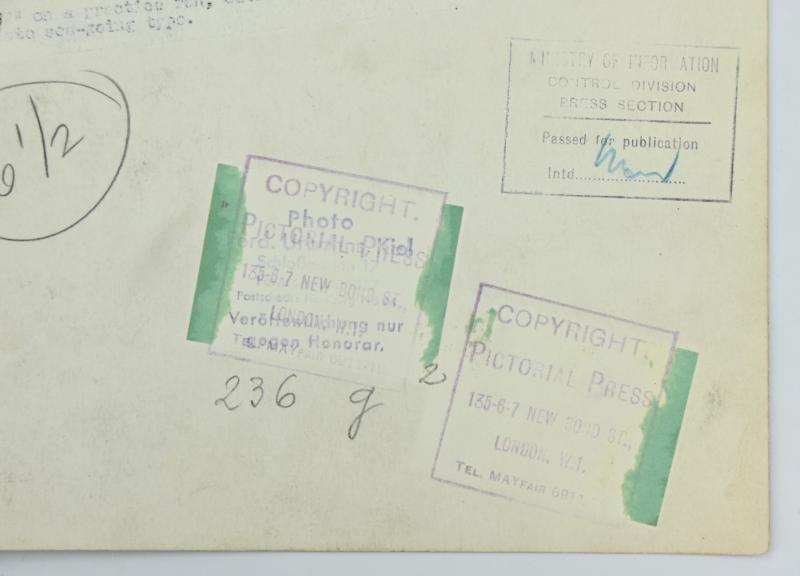 on a practice run,
sea-going type.
MINISTRY OF INFORMATION
CONTROL DIVISION
PRESS SECTION
Passed for publication
Intd.
1/2
COPYRIGHT.
PICTORIAL PRESS
135-6-7 NEW BOND ST.,
LONDON, W.1.
TEL. MAYFAIR
Photo
Ferd. Urbahns, Kiel
Veröffentlichung nur
gegen Honorar.
236 g 2
COPYRIGHT.
PICTORIAL PRESS
135-6-7 NEW BOND ST.,
LONDON, W.1.
TEL. MAYFAIR